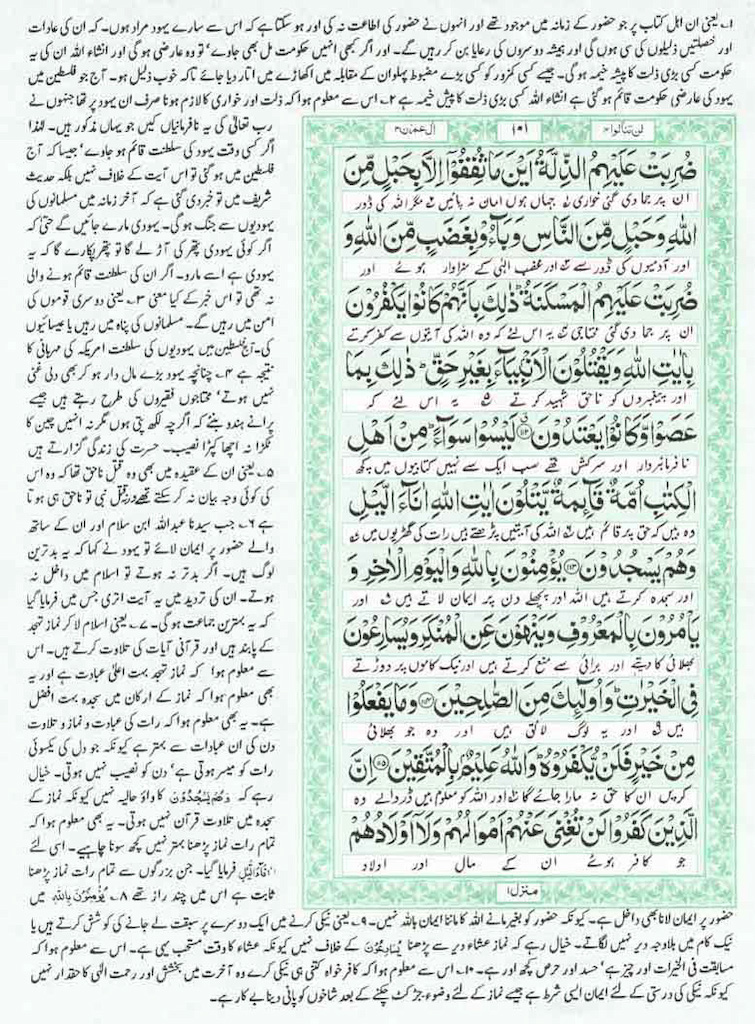 ۱۔ یعنی ان اہل کتاب پر جو حضور کے زمانہ میں موجود تھے اور انہوں نے حضور کی اطاعت نہ کی اور ہو سکتا ہے کہ اس سے سارے یہود مراد ہوں۔ کہ ان کی عادات
اور خصلتیں ذلیلوں کی سی ہوں گی اور ہمیشہ دوسروں کی رعایا بن کر رہیں گے۔ اور اگر کبھی انہیں حکومت مل بھی جاوے' تو وہ عارضی ہو گی اور انشاء اللہ ان کی یہ
حکومت کسی بڑی ذلت کا پیشہ خیمہ ہو گی۔ جیسے کسی کمزور کو کسی بڑے مضبوط پہلوان کے مقابلہ میں اکھاڑے میں اتار دیا جائے تاکہ خوب ذلیل ہو۔ آج جو فلسطین میں
یہود کی عارضی حکومت قائم ہو گئی ہے انشاء اللہ کسی بڑی ذلت کا پیش خیمہ ہے ۲۔ اس سے معلوم ہوا کہ ذلت اور خواری کا لازم ہونا صرف ان یہود پر تھا جنہوں نے
رب تعالیٰ کی یہ نافرمانیاں کیں جو یہاں مذکور ہیں۔ لہٰذا
اگر کسی وقت یہود کی سلطنت قائم ہو جاوے' جیسا کہ آج
فلسطین میں ہو گئی تو اس آیت کے خلاف نہیں بلکہ حدیث
شریف میں تو خبر دی گئی ہے کہ آخر زمانہ میں مسلمانوں کی
یہودیوں سے جنگ ہو گی۔ یہودی مارے جائیں گے حتیٰ کہ
اگر کوئی یہودی پتھر کی آڑ لے گا تو پتھر پکارے گا کہ یہ
یہودی ہے اسے مارو۔ اگر ان کی سلطنت قائم ہونے والی
نہ تھی تو اس خبر کے کیا معنی ۳۔ یعنی دوسری قوموں کی
امن میں رہیں گے۔ مسلمانوں کی پناہ میں رہیں یا عیسائیوں
کی۔ آج فلسطین میں یہودیوں کی سلطنت امریکہ کی مہربانی کا
نتیجہ ہے ۴۔ چنانچہ یہود بڑے مال دار ہو کر بھی دلی غنی
نہیں ہوتے' محتاجوں فقیروں کی طرح رہتے ہیں جیسے
پرانے ہندو بنئے کہ اگرچہ لکھ پتی ہوں مگر نہ انہیں چین کا
ٹکڑا نہ اچھا کپڑا نصیب۔ حسرت کی زندگی گزارتے ہیں
۵۔ یعنی ان کے عقیدہ میں بھی وہ قتل ناحق تھا کہ وہ اس
کی کوئی وجہ بیان نہ کر سکتے تھے ورنہ قتل نبی تو ناحق ہی ہوتا
ہے ۶۔ جب سیدنا عبداللہ ابن سلام اور ان کے ساتھ
والے حضور پر ایمان لائے تو یہود نے کہا کہ یہ بدترین
لوگ ہیں۔ اگر بدتر نہ ہوتے تو اسلام میں داخل نہ
ہوتے۔ ان کی تردید میں یہ آیت اتری جس میں فرمایا گیا
کہ یہ بہترین جماعت ہو گی۔ ۷۔ یعنی اسلام لا کر نماز تہجد
کے پابند ہیں اور قرآنی آیات کی تلاوت کرتے ہیں۔ اس
سے معلوم ہوا کہ نماز تہجد بہت اعلیٰ عبادت ہے اور یہ
بھی معلوم ہوا کہ نماز کے ارکان میں سجدہ بہت افضل
ہے۔ یہ بھی معلوم ہوا کہ رات کی عبادت و نماز و تلاوت
دن کی ان عبادات سے بہتر ہے کیونکہ جو دل کی یکسوئی
رات کو میسر ہوتی ہے' دن کو نصیب نہیں ہوتی۔ خیال
رہے کہ وَهُمْ يَسْجُدُوْنَ کا واؤ حالیہ نہیں کیونکہ نماز کے
سجدہ میں تلاوت قرآن نہیں ہوتی۔ یہ بھی معلوم ہوا کہ
تمام رات نماز پڑھنا بہتر نہیں کچھ سونا چاہیے۔ اسی لئے
اٰنَآءَ الَّيْلِ فرمایا گیا۔ جن بزرگوں سے تمام رات نماز پڑھنا
ثابت ہے اس میں چند راز تھے ۸۔ يُؤْمِنُوْنَ بِاللّٰهِ میں
لن تنالوا ۴
۱۰۱
اٰل عمرٰن ۳
ضُرِبَتْ عَلَيْهِمُ الذِّلَّةُ اَيْنَ مَا ثُقِفُوْٓا اِلَّا بِحَبْلٍ مِّنَ
ان پر جما دی گئی خواری جہاں ہوں امان نہ پائیں مگر اللہ کی ڈور
اللّٰهِ وَحَبْلٍ مِّنَ النَّاسِ وَبَآءُوْ بِغَضَبٍ مِّنَ اللّٰهِ وَ
اور آدمیوں کی ڈور سے اور غضب الٰہی کے سزاوار ہوئے اور
ضُرِبَتْ عَلَيْهِمُ الْمَسْكَنَةُ ذٰلِكَ بِاَنَّهُمْ كَانُوْا يَكْفُرُوْنَ
ان پر جما دی گئی محتاجی یہ اس لئے کہ وہ اللہ کی آیتوں سے کفر کرتے
بِاٰيٰتِ اللّٰهِ وَيَقْتُلُوْنَ الْاَنْۢبِيَآءَ بِغَيْرِ حَقٍّ ذٰلِكَ بِمَا
اور پیغمبروں کو ناحق شہید کرتے یہ اس لئے کہ
عَصَوْا وَّكَانُوْا يَعْتَدُوْنَ ۱۱۲ لَيْسُوْا سَوَآءً مِنْ اَهْلِ
نافرمانبردار اور سرکش تھے سب ایک سے نہیں کتابیوں میں کچھ
الْكِتٰبِ اُمَّةٌ قَآئِمَةٌ يَّتْلُوْنَ اٰيٰتِ اللّٰهِ اٰنَآءَ الَّيْلِ
وہ ہیں کہ حق پر قائم ہیں اللہ کی آیتیں پڑھتے ہیں رات کی گھڑیوں میں
وَهُمْ يَسْجُدُوْنَ ۱۱۳ يُؤْمِنُوْنَ بِاللّٰهِ وَالْيَوْمِ الْاٰخِرِ وَ
اور سجدہ کرتے ہیں اللہ اور پچھلے دن پر ایمان لاتے ہیں اور
يَاْمُرُوْنَ بِالْمَعْرُوْفِ وَيَنْهَوْنَ عَنِ الْمُنْكَرِ وَيُسَارِعُوْنَ
بھلائی کا دیتے اور برائی سے منع کرتے ہیں اور نیک کاموں پر دوڑتے
فِي الْخَيْرٰتِ وَاُولٰٓئِكَ مِنَ الصّٰلِحِيْنَ ۱۱۴ وَمَا يَفْعَلُوْا
ہیں اور یہ لوگ لائق ہیں اور وہ جو بھلائی
مِنْ خَيْرٍ فَلَنْ يُّكْفَرُوْهُ وَاللّٰهُ عَلِيْمٌۢ بِالْمُتَّقِيْنَ ۱۱۵ اِنَّ
کریں ان کا حق نہ مارا جائے گا اور اللہ کو معلوم ہیں ڈر والے وہ
الَّذِيْنَ كَفَرُوْا لَنْ تُغْنِيَ عَنْهُمْ اَمْوَالُهُمْ وَلَآ اَوْلَادُهُمْ
جو کافر ہوئے ان کے مال اور اولاد
منزل ۱
حضور پر ایمان لانا بھی داخل ہے۔ کیونکہ حضور کو بغیر مانے اللہ کا ماننا ایمان باللہ نہیں۔ ۹۔ یعنی نیکی کرنے میں ایک دوسرے پر سبقت لے جانے کی کوشش کرتے ہیں یا
نیک کام میں بلاوجہ دیر نہیں لگاتے۔ خیال رہے کہ نماز عشاء دیر سے پڑھنا يُسَارِعُوْنَ کے خلاف نہیں کیونکہ عشاء کا وقت مستحب یہی ہے۔ اس سے معلوم ہوا کہ
مسابقت فی الخیرات اور چیز ہے' حسد اور حرص کچھ اور ہے۔ ۱۰۔ اس سے معلوم ہوا کہ کافر خواہ کتنی ہی نیکی کرے وہ آخرت میں بخشش اور رحمت الٰہی کا حقدار نہیں
کیونکہ نیکی کی درستی کے لئے ایمان ایسی شرط ہے جیسے نماز کے لئے وضوء۔ جڑ کٹ چکنے کے بعد شاخوں کو پانی دینا بے کار ہے۔